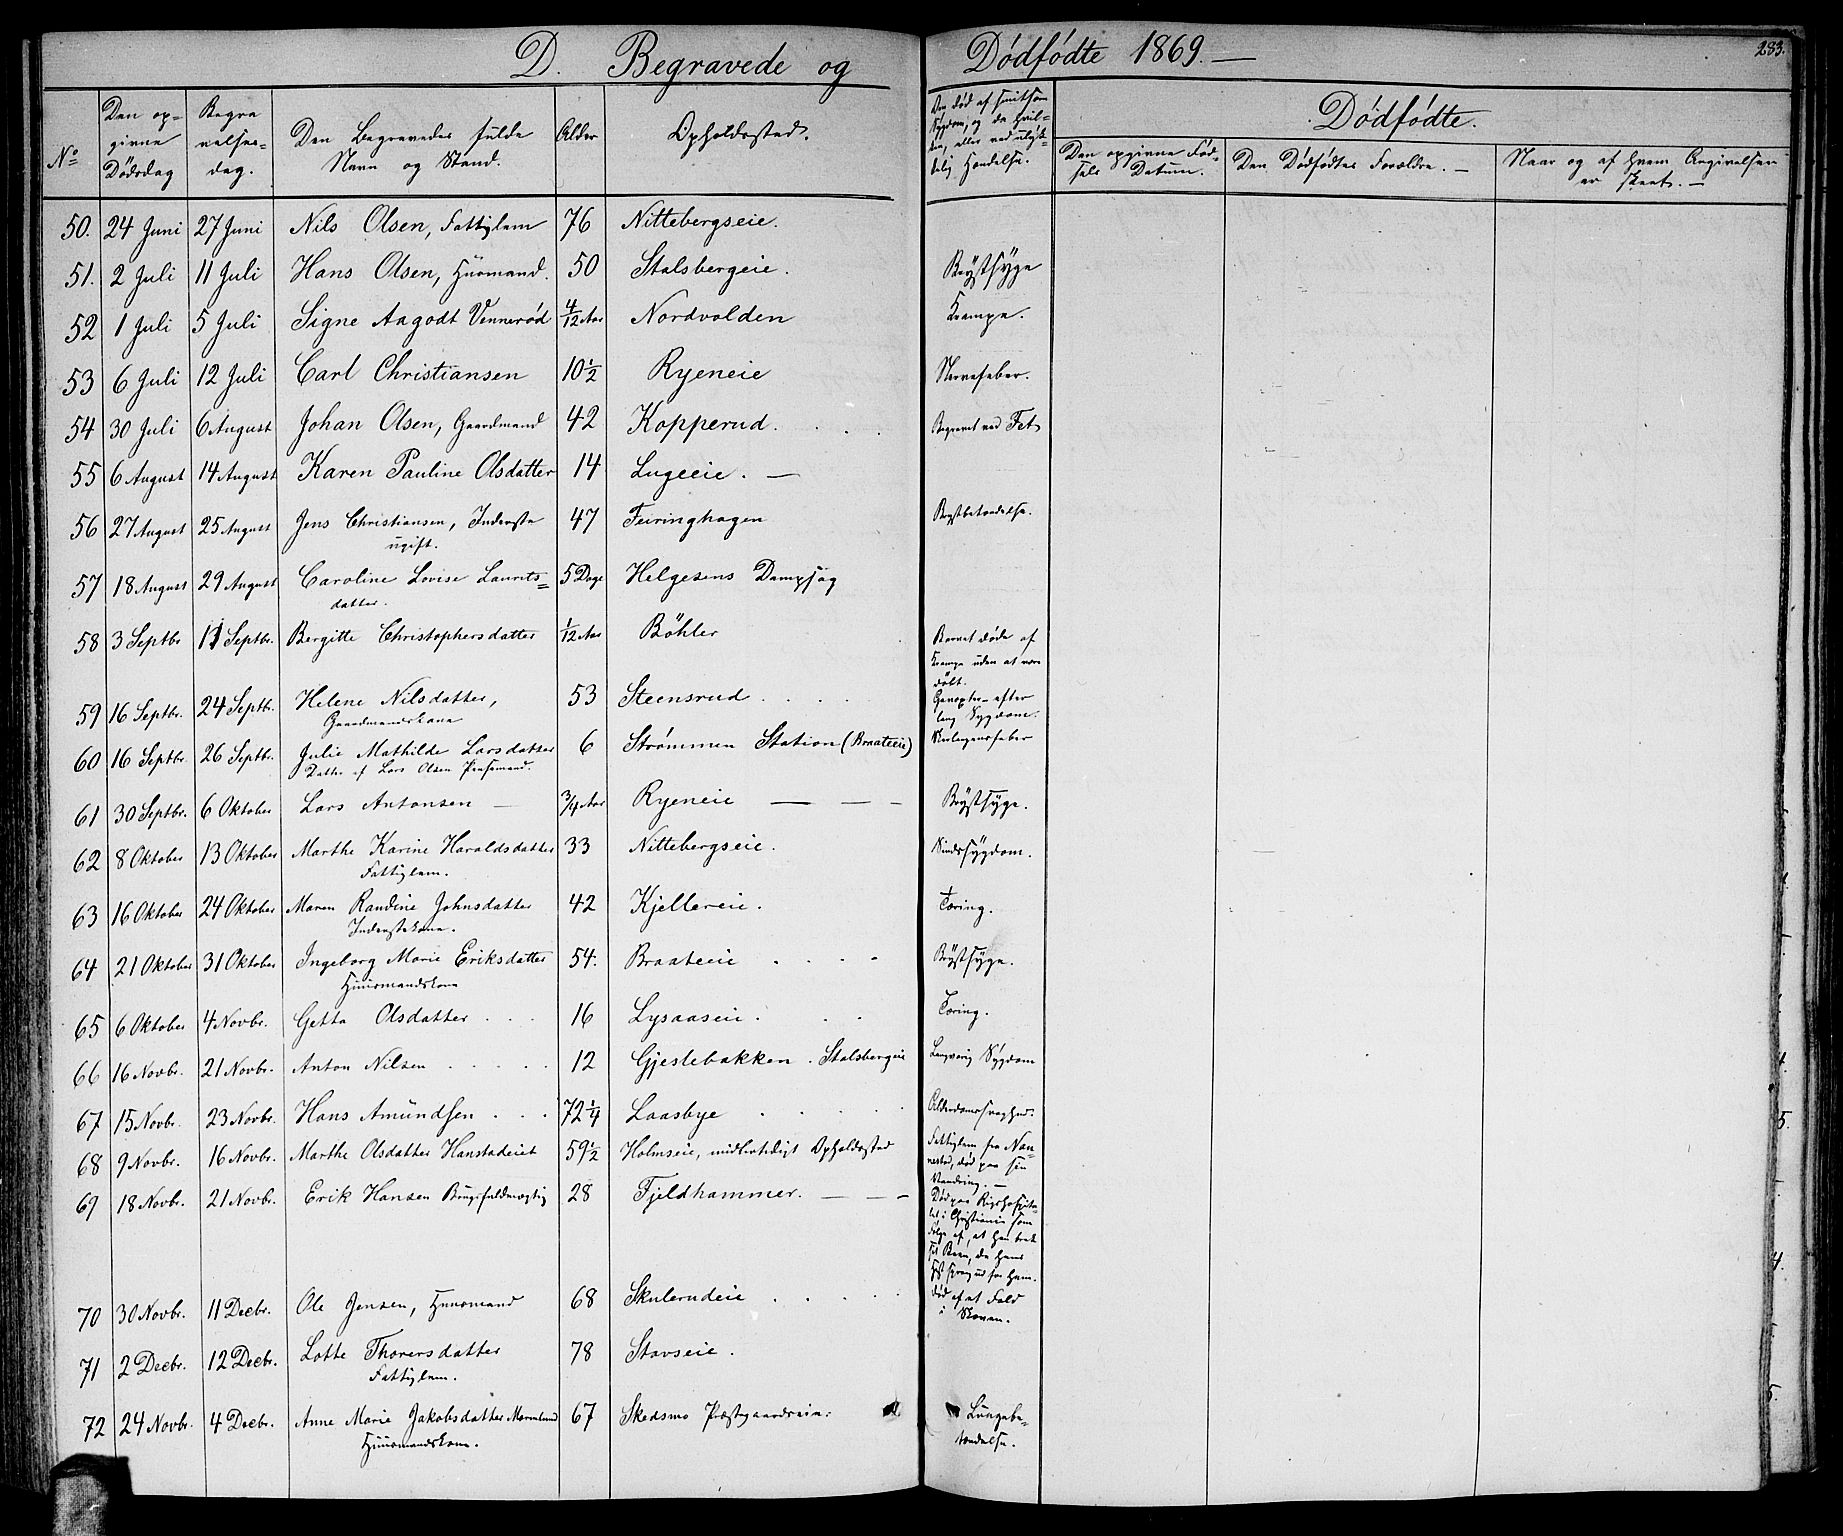 D. Begravede og Dødfødte 1869. —
283.
No
Den opgivne Dødsdag
Begravelsesdag.
Den Begravedes fulde Navn og Stand.
Alder
Opholdssted.
Om død af smitsom Sygdom, og da hvilken, eller ved ulykkelig Hændelse.
Dødfødte.
Den opgivne Fødsels Datum.
Den Dødfødtes Forældre. —
Naar og af hvem Angivelsen er skeet. —
50. 24 Juni 27 Juni Nils Olsen, Fattiglem 76 Nittebergseie.
51. 2 Juli 11 Juli Hans Olsen, Huusmand. 50 Stalsbergeie. Brystsyge
52 1 Juli 5 Juli Signe Aagodt Vennerød 4/12 Aar Nordvolden Krampe.
53 6 Juli 12 Juli Carl Christiansen 10½ Ryeneie Nervefeber.
54 30 Juli 6 August Johan Olsen, Gaardmand 42 Kopperud. Begravet ved Fet
55 6 August 14 August Karen Pauline Olsdatter 14 Lugeeie. —
56 27 August 25 August Jens Christiansen, Inderste 47 Feiringhagen Brystbetændelse.
ugift.
57 18 August 29 August Caroline Lovise Laurits= 5 Dage Helgesens Dampsag
datter.
58 3 Septbr 11 Septbr. Bergitte Christophersdatter 1/12 Aar Böhler Barnet døde af
Krampe uden at være
døbt.
59 16 Septbr. 24 Septbr. Helene Nilsdatter, 53 Steensrud . . . efter
Gaardmandskone lang Sygdom.
60 16 Septbr. 26 Septbr. Julie Mathilde Larsdatter 6 Strømmen Station (Braateeie) Skarlagensfeber
Datter af Lars Olsen
61 30 Septbr. 6 Oktober Lars Antonsen — 3/4 Aar Ryeneie — — — Brystsyge.
62 8 Oktober 13 Oktober Marthe Karine Haraldsdatter 33 Nittebergseie. Sindssygdom.
Fattiglem.
63 16 Oktober 24 Oktober Maren Randine Johnsdatter 42 Kjellereie. Tæring.
Inderstekone.
64 21 Oktober 31 Oktober Ingeborg Marie Eriksdatter 54. Braateeie . . . Brystsyge.
Huusmandskone
65 6 Oktober 4 Novbr. Getta Olsdatter . . . 16 Lysaaseie . . . Tæring.
66 16 Novbr. 21 Novbr. Anton Nilsen . . . . . 12 Gjestebakken. Stalsbergeie Langvarig Sygdom
67 15 Novbr. 23 Novbr. Hans Amundsen . . . 72¼ Laasbye . . . . . Alderdomssvaghed.
68 9 Novbr. 16 Novbr. Marthe Olsdatter Hanstadeiet 59½ Holmseie, midlertidigt Opholdssted Fattiglem fra Nan-
nestad, død paa sin
Vandring. —
69 18 Novbr. 21 Novbr. Erik Hansen Brugsfuldmægtig 28 Fjeldhammer. — — — Død paa Rigshospita-
let i Christiania som
Følge af, at han brak
sit Been, da hans
Hest sprang ud for ham.
70 30 Novbr. 11 Decbr. Ole Jensen, Huusmand 68 Skulerudeie . . . . . Død af at Fald
i Skoven.
71 2 Decbr. 12 Decbr. Lotte Thorersdatter 78 Stavseie .
Fattiglem.
72 24 Novbr. 4 Decbr. Anne Marie Jakobsdatter 67 Skedsmo Præstgaardseie. Lungebe-
Huusmandskone. tændelse.